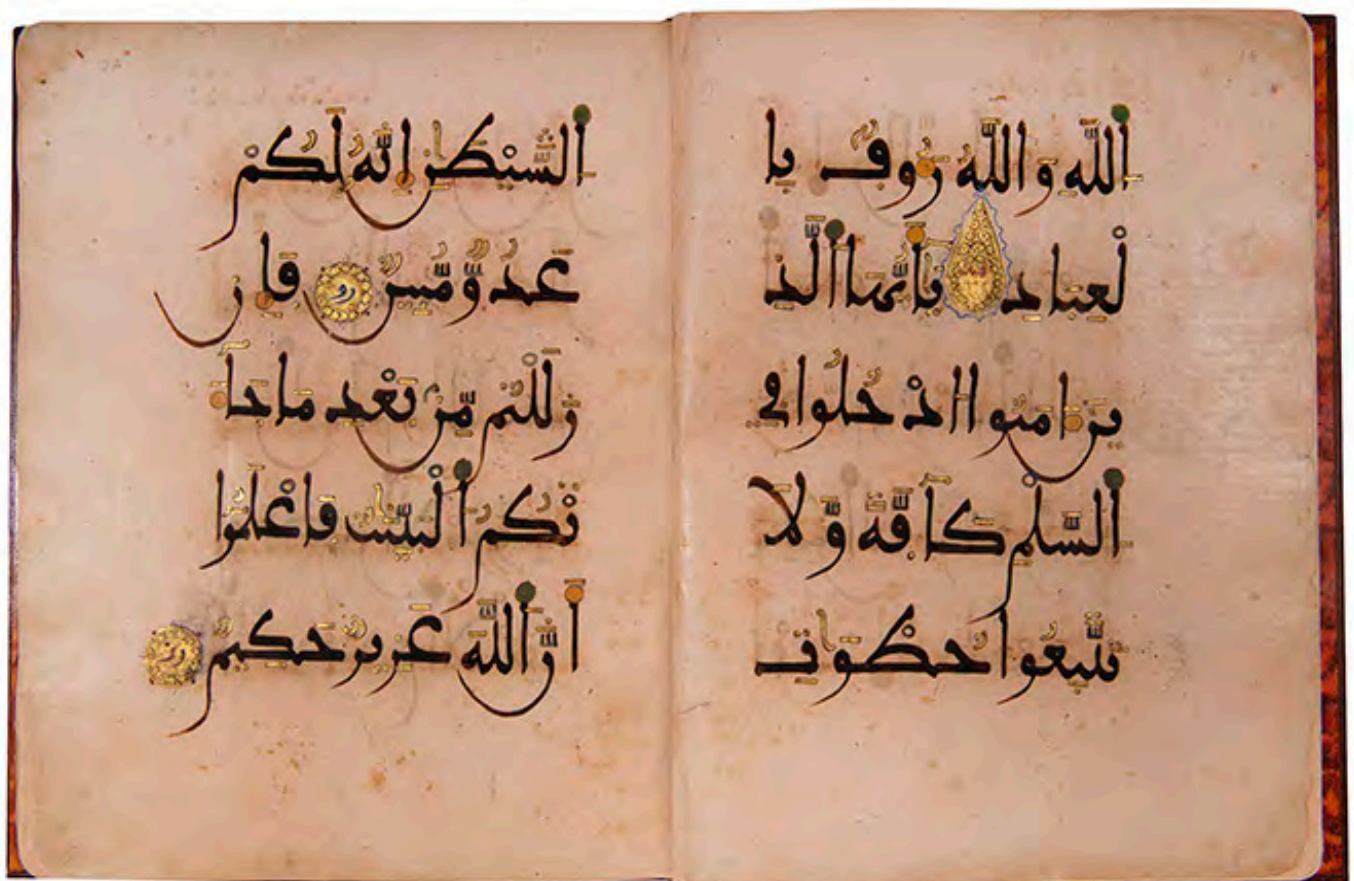 اَللَّهِ وَاللَّهُ رَءُوفٌ بِا
لْعِبَادِ يَٰأَيُّهَا اَلَّذِ
ينَ ءَامَنُوا اُدْخُلُوا فِي
اِلسَّلْمِ كَافَّةً وَّلَا
تَتَّبِعُوا خُطْوَٰتِ
اِلشَّيْطَٰنِ إِنَّهُ لَكُمْ
عَدُوٌّ مُّبِينٌ فَإِن
زَلَلْتُم مِّنۢ بَعْدِ مَا جَآ
ءَتْكُمُ اَلْبَيِّنَٰتُ فَاعْلَمُوا
أَنَّ اَللَّهَ عَزِيزٌ حَكِيمٌ